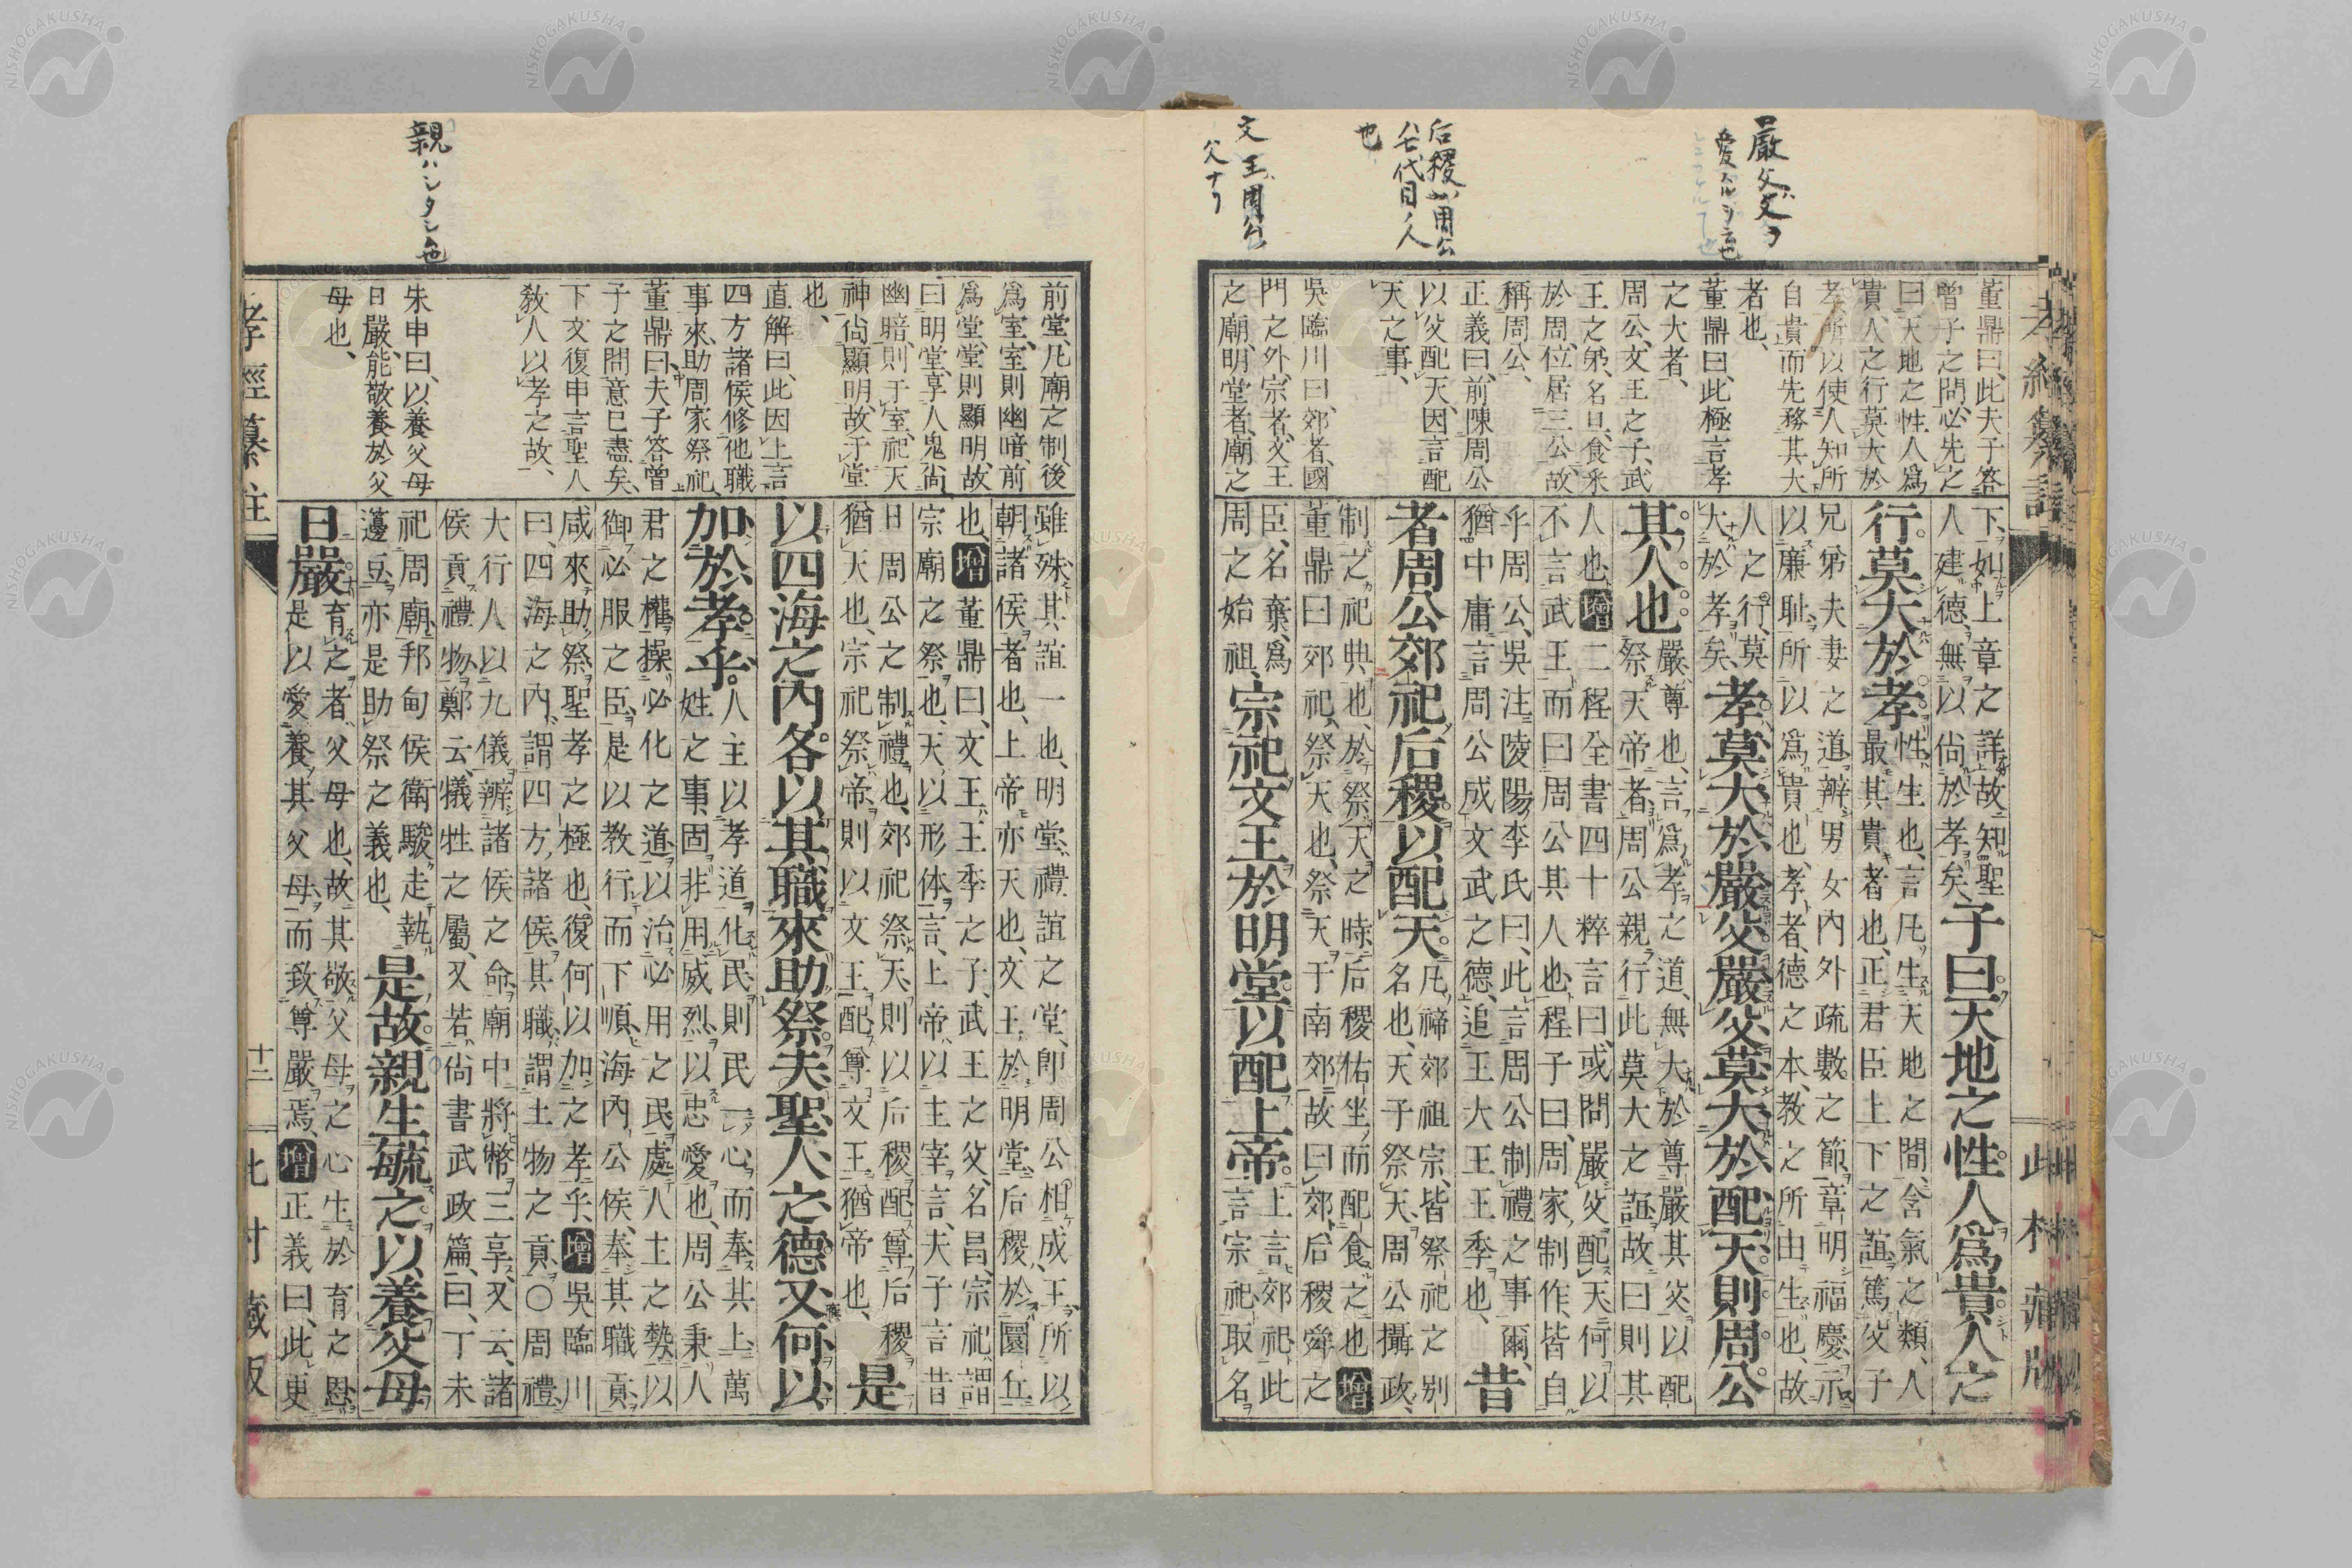 嚴父父ヲ
愛スルヲ云也
后稷ハ周公
八七代目ノ人
也
文王周公
父ナリ
孝經纂註
此村藏版
董鼎曰、此夫子答
曾子之問、必先之
曰天地之性人爲
貴、人之行莫大於
孝、所以使人知所
自貴而先務其大
者也、
董鼎曰、此極言孝
之大者、
周公、文王之子、武
王之弟、名旦、食采
於周、位居三公、故
稱周公、
正義曰、前陳周公
以父配天、因言配
天之事、
吳臨川曰、郊者、國
門之外、宗者、文王
之廟、明堂者、廟之
下、如上章之詳、故知聖
人建德、無以尚於孝矣、
子曰天地之性人爲貴人之
行莫大於孝
性生也、言凡生天地之間、含氣之類、人
最其貴者也、正君臣上下之誼、篤父子
兄弟夫妻之道、辨男女內外疏數之節、章明福慶、示
以廉耻、所以爲貴也、孝者、德之本、敎之所由生也、故
人之行、莫
大於孝矣、
孝莫大於嚴父嚴父莫大於配天則周公
其人也
嚴、尊也、言爲孝之道、無大於尊嚴其父、以配
祭天帝者、周公親行此莫大之誼、故曰則其
人也、增二程全書四十粹言曰、或問嚴父配天、何以
不言武王、而曰周公其人也、程子曰、周家制作、皆自
乎周公、吳注、陵陽李氏曰、此言周公制禮之事爾、
猶中庸言周公成文武之德、追王大王王季也、
昔
者周公郊祀后稷以配天
凡禘郊祖宗、皆祭祀之別
名也、天子祭天、周公攝政、
制之祀典也、於祭天之時、后稷佑坐、而配食之也增
董鼎曰郊祀、祭天也、祭天于南郊、故曰郊、后稷、舜之
臣、名棄、爲
周之始祖、
宗祀文王於明堂以配上帝
上言郊祀、此
言宗祀、取名
親ハシタシ也
前堂、凡廟之制、後
爲室、室則幽暗、前
爲堂、堂則顯明、故
曰明堂、享人鬼尙
幽暗、則于室、祀天
神尙顯明、故于堂
也、
直解曰、此因上言
四方諸侯修他職
事來助周家祭祀、
董鼎曰、夫子答曾
子之問、意已盡矣、
下文復申言聖人
敎人以孝之故、
朱申曰、以養父母
日嚴、能敬養於父
母也、
雖殊、其誼一也、明堂、禮誼之堂、卽周公相成王、所以
朝諸侯者也、上帝亦天也、文王、於明堂、后稷、於圜丘
也、增董鼎曰、文王、王季之子、武王之父、名昌、宗祀、謂
宗廟之祭也、天、以形体言、上帝、以主宰言、夫子言昔
日周公之制禮也、郊祀祭天、則以后稷配、尊后稷
猶天也、宗祀祭帝、則以文王配、尊文王猶帝也、
是
以四海之內各以其職來助祭夫聖人之德又何以
加於孝乎
人主以孝道化民、則民一心而奉其上、萬
姓之事、固非用威烈、以忠愛也、周公秉人
君之權操必化之道、以治必用之民、處人主之勢、以
御必服之臣、是以敎行而下順、海內公侯、奉其職貢、
咸來助祭、聖孝之極也、復何以加之孝乎、增吳臨川
曰、四海之內、謂四方諸侯、其職、謂土物之貢、○周禮、
大行人以九儀辨諸侯之命、廟中將幣三享、又云、諸
侯貢禮物、鄭云、犧牲之屬、又若尙書武政篇曰、丁未
祀周廟、邦甸侯衛駿走、執
籩豆、亦是助祭之義也、
是故親生毓之以養父母
日嚴
育之者、父母也、故其敬父母之心、生於育之恩、
是以愛養其父母、而致尊嚴焉、增正義曰、此更
孝經纂註
十二
此村藏版